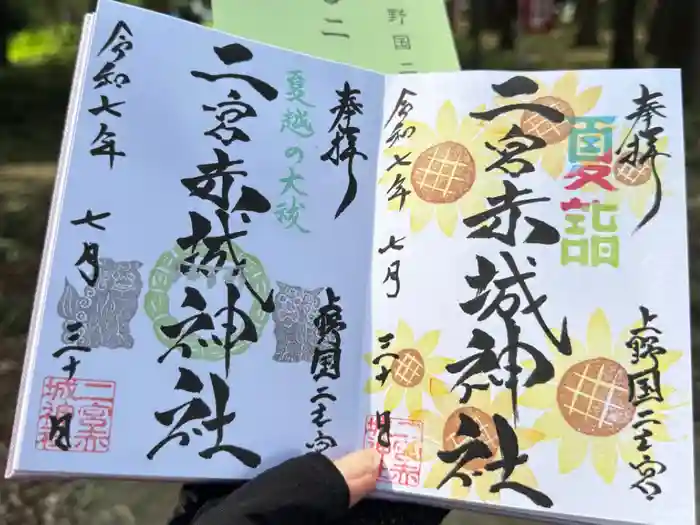 野国二
二
奉拝
夏詣
上野国二之宮
二宮赤城神社
令和七年
七月
三十日
奉拝
夏越の大祓
上野国二之宮
二宮赤城神社
令和七年
七月
三十日
二宮赤
城神社